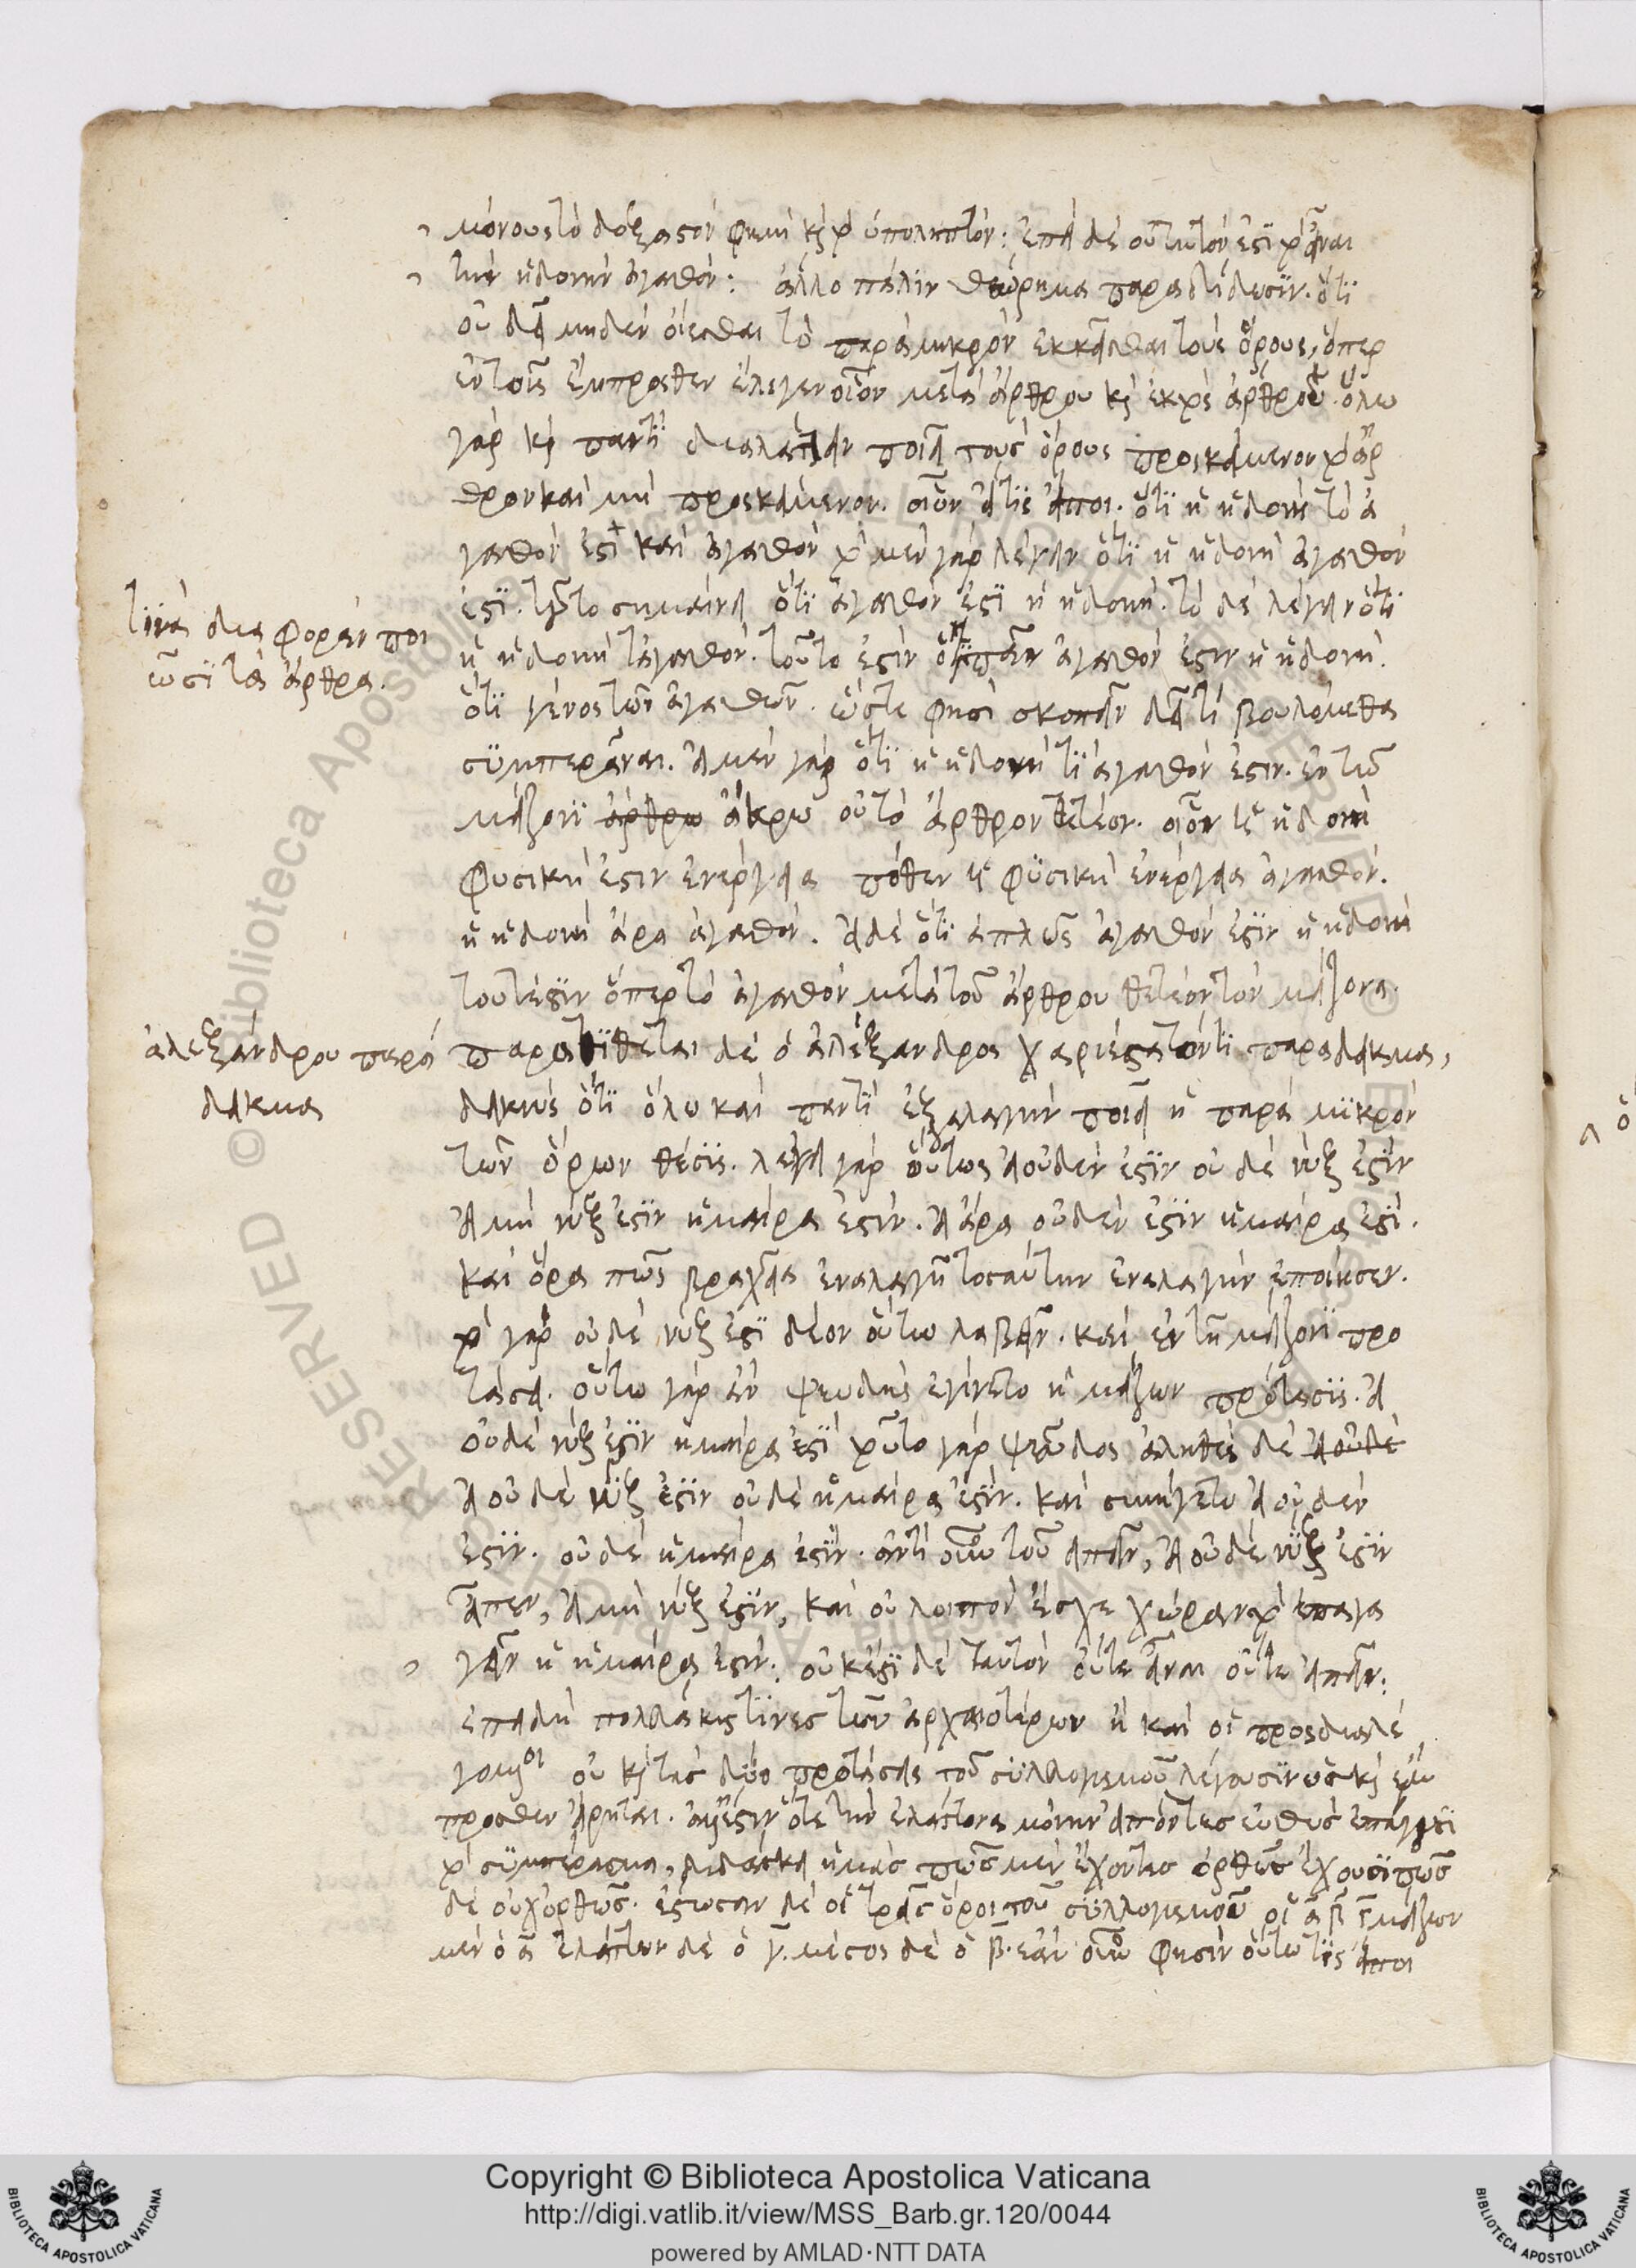 μόνους τὸ δόξαστόν φημι καὶ τὸ ὑποληπτόν: ἐπεὶ δὲ οὐ ταυτόν ἐστι τὸ εἶναι
τὴν ἡδονὴν ἀγαθόν: ἄλλο πάλιν θεώρημα παραδίδωσιν. ὅτι
οὐ δεῖ μηδὲν οἴεσθαι τὸ παρὰ μικρὸν ἐκκεῖσθαι τοὺς ὅρους, ὅπερ
ἐν τοῖς ἔμπροσθεν ἔλεγεν οἷον μετὰ ἄρθρου καὶ ἐκτὸς ἄρθρου ὅλω
γὰρ καὶ παντὶ διαλάττειν ποιεῖ τοὺς ὅρους προσκείμενον τὸ ἄρ
θρον καὶ μὴ προσκείμενον. οἷον εἴ τις εἴποι. ὅτι ἡ ἡδονὴ τὸ ἀ
γαθόν ἐστι καὶ ἀγαθόν τὸ μὲν γὰρ λέγειν ὅτι ἡ ἡδονὴ ἀγαθόν
ἐστι. τοῦτο σημαίνει ὅτι ἀγαθόν ἐστι ἡ ἡδονή. τὸ δὲ λέγειν ὅτι
τίνα διαφορὰν ποι
ἡ ἡδονὴ τἀγαθόν. τοῦτο ἐστὶν ὅτι πᾶν ἀγαθόν ἐστιν ἡ ἡδονή.
οῦσι τὰ ἄρθρα.
ὅτι γένος τῶν ἀγαθῶν. ὥστε φησὶ σκοπεῖν δεῖ τί βουλόμεθα
συμπερᾶναι. εἰ μὲν γὰρ ὅτι ἡ ἡδονή τι ἀγαθόν ἐστιν. ἐν τῷ
μείζονι ἄρθρω ἄκρω οὐ τὸ ἄρθρον θετέον. οἷον ἡ ἡδονὴ
φυσική ἐστιν ἐνέργεια πόθεν ἡ φυσικὴ ἐνέργεια ἀγαθόν.
ἡ ἡδονὴ ἄρα ἀγαθόν. εἰ δὲ ὅτι ἁπλῶς ἀγαθόν ἐστιν ἡ ἡδονὴ
τουτέστιν ὅπερ τὸ ἀγαθὸν μετὰ τοῦ ἄρθρου θετέον τὸν μείζονα.
ἀλεξάνδρου παρά
δειγμα
παρατίθεται δὲ ὁ ἀλέξανδρος χαριέστατόν τι παράδειγμα,
δεικνὺς ὅτι ὅλω καὶ παντὶ ἐξαλαγὴν ποιεῖ ἡ παρὰ μικρὸν
τῶν ὅρων θέσις. λέγει γὰρ οὕτως εἰ οὐδέν ἐστιν οὐδὲ νὺξ ἐστὶν
εἰ μὴ νὺξ ἐστὶν ἡμαίρα ἐστίν. εἰ ἄρα οὐδέν ἐστιν ἡμαίρα ἐστί.
καὶ ὅρα πῶς βραχεῖα ἐναλαγὴ τοσαύτην ἐναλαγὴν ἐποίησεν.
τὸ γὰρ οὐδὲ νὺξ ἐστὶ δέον οὕτω λαβεῖν. καὶ ἐν τῇ μείζονι προ
τάσει. οὕτω γὰρ ἂν ψευδὴς ἐγίνετο ἡ μείζων πρότασις. εἰ
οὐδὲ νὺξ ἐστὶν ἡμαίρα ἐστὶ τοῦτο γὰρ ψεῦδος ἀληθὲς δὲ εἰ οὐδὲ
εἰ οὐδὲ νὺξ ἐστὶν οὐδὲ ἡμαίρα ἐστίν. καὶ συνήγετο εἰ οὐδέν
ἐστιν. οὐδὲ ἡμαίρα ἐστίν. ἀντὶ οὖν τοῦ εἰπεῖν, εἰ οὐδὲ νὺξ ἐστὶν
εἶπεν, εἰ μὴ νὺξ ἐστὶν, καὶ οὐ λοιπὸν ἔσχε χώραν τὸ ἐπαγα
γεῖν ἡ ἡμαίρα ἐστίν: οὐκ ἔστι δὲ ταυτὸν οὔτε εἶναι οὔτε εἰπεῖν:
ἐπειδὴ πολλάκις τινὲς τῶν ἀρχαιοτέρων ἢ καὶ οἱ προσδιαλε
γόμενοι οὐ καὶ τὰς δύο προτάσεις τοῦ συλλογισμοῦ λέγουσιν ὡς καὶ ἔμ
προσθεν εἴρηται. ἀλλ' ἔστιν ὅτε τὴν ἐλάττονα μόνην εἰπόντες εὐθὺς ἐπάγουσι
τὸ συμπέρασμα, διδάσκει ἡμᾶς πῶς μὲν ἔχοντες ὀρθῶς ἔχουσι πῶς
δὲ οὐχ ὀρθῶς. ἔστωσαν δὲ οἱ τρεῖς ὅροι τοῦ συλλογισμοῦ οἱ α β γ μείζων
μὲν ὁ α ἐλάττων δὲ ὁ γ. μέσος δὲ ὁ β. ἐὰν οὖν φησὶν οὕτω τὶς εἴποι
Copyright © Biblioteca Apostolica Vaticana
http://digi.vatlib.it/view/MSS_Barb.gr.120/0044
powered by AMLAD·NTT DATA